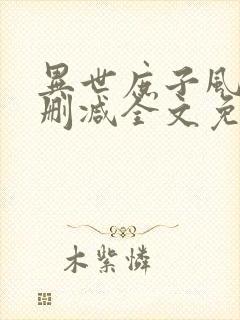 異世庶子風
刪減全文免
木紫憐